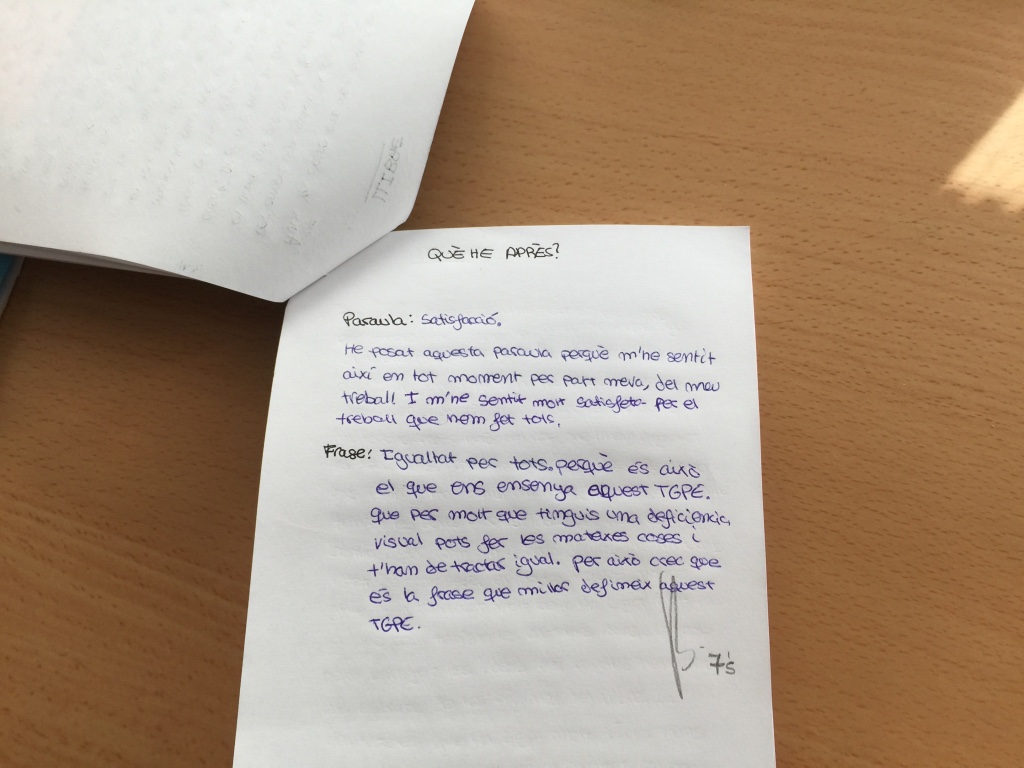 QUÈ HE APRÈS?
Paraula: satisfacció.
He posat aquesta paraula perquè m'he sentit
així en tot moment per part meva, del meu
treball. I m'he sentit molt satisfeta per el
treball que hem fet tots.
Frase: Igualtat per tots. perquè és això
el que ens ensenya aquest TGPE.
que per molt que tinguis una deficiència
visual pots fer les mateixes coses i
t'han de tractar igual. per això crec que
és la frase que millor defineix aquest
TGPE.